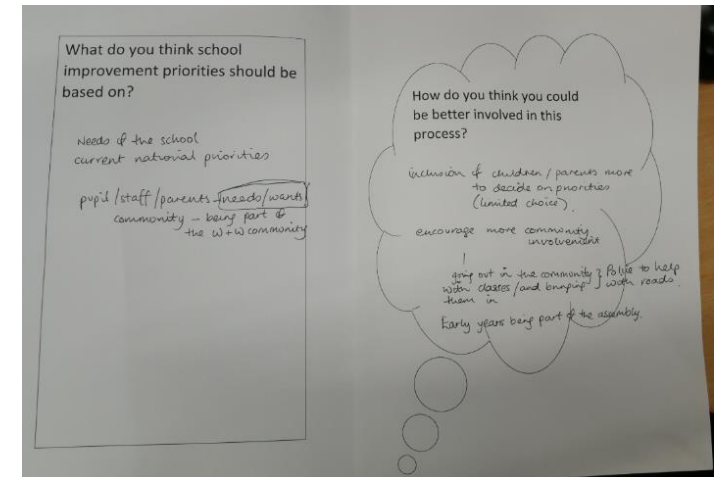 What do you think school
improvement priorities should be
based on?
Needs of the school
current national priorities
pupil/staff/parents - needs/wants
community - being part of
the W+W community
How do you think you could
be better involved in this
process?
inclusion of children/parents more
to decide on priorities
(limited choice).
encourage more community
involvement
going out in the community } Police to help
with classes/and bringing } with roads.
them in
Early years being part of the assembly.